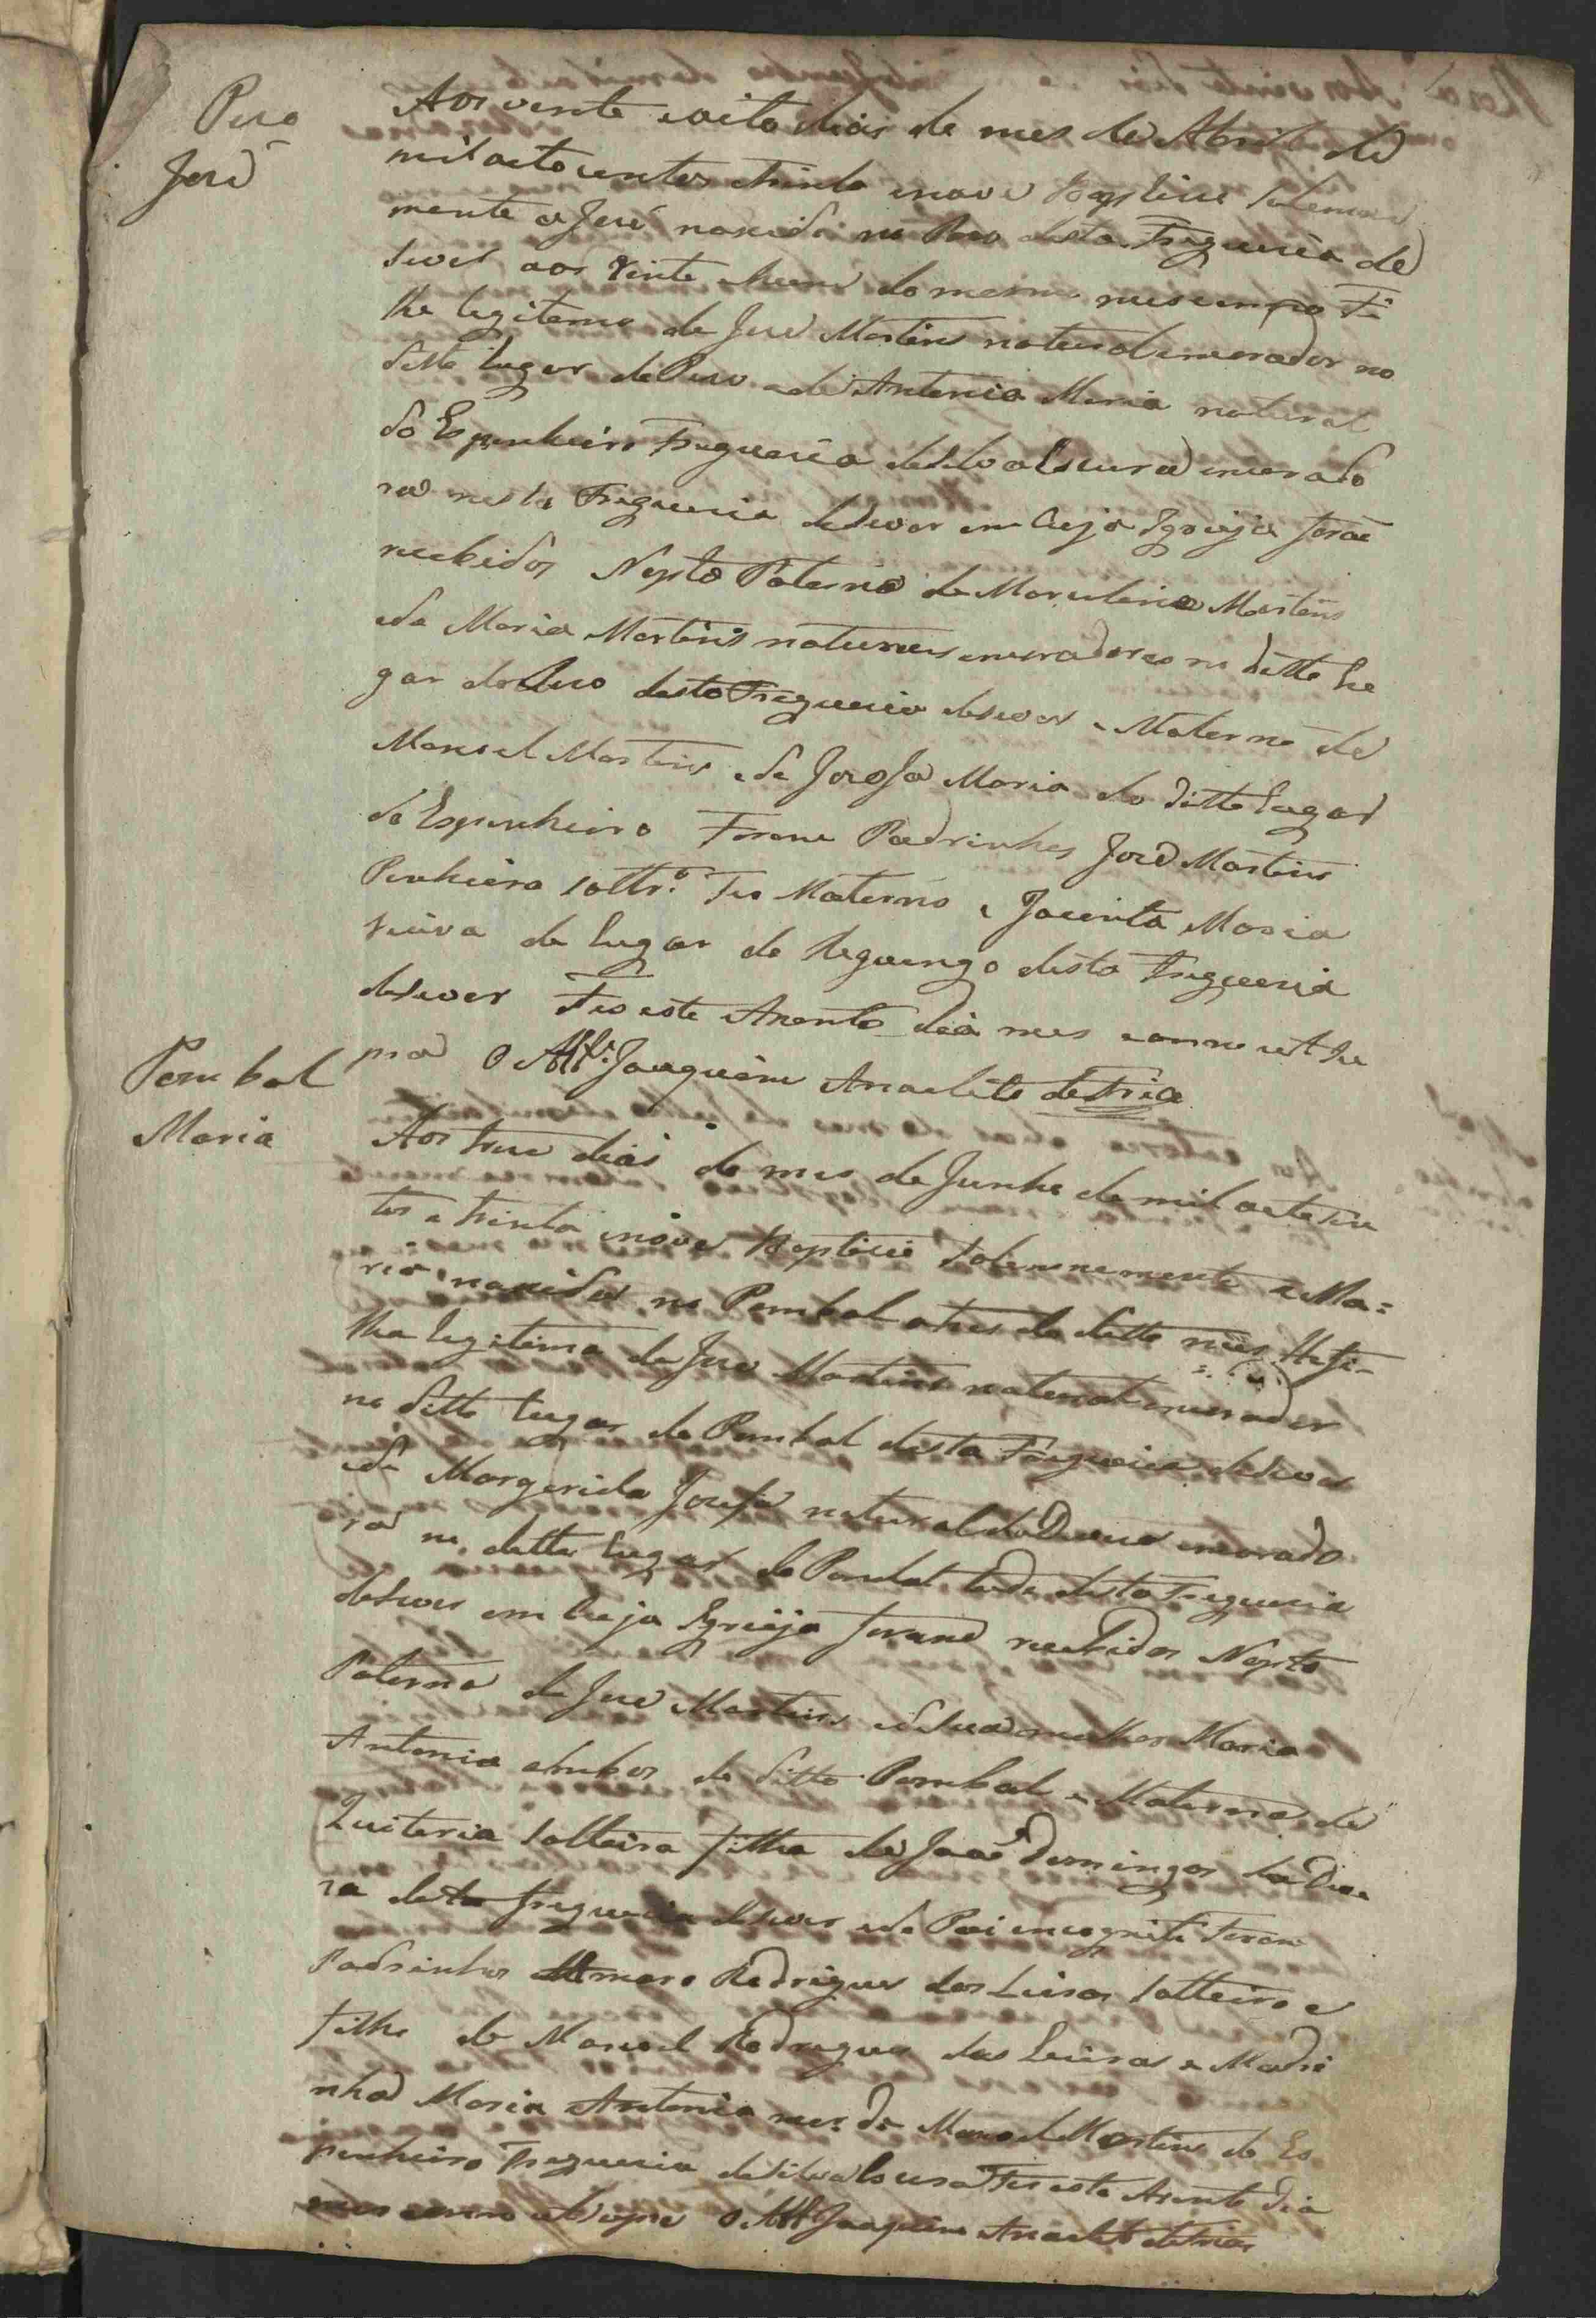 Pezo
José
Aos vente e oito dias do mes de Abril de
mil oito centos trinta e nove Baptizei Solemne
mente a José nascido no Pezo desta Freguezia de
Sever aos vinte e hum do mesmo mes e anno Fi
lho legitemo de José Martins natural e morador no
ditto lugar do Pezo e de Antonia Maria natural
do Espinheiro Freguezia de Silva Escura e morado
ra nesta Freguezia de Sever em cuja Igreija forão
recebidos Nepto Paterno de Martins
e de Maria Martins naturaes e moradores no ditto lu
gar do Pezo desta Freguezia de Sever e Materno de
Manoel Martins e de Josefa Maria do ditto lugar
do Espinheiro Forão Padrinhos José Martins
Pinheiro soltr.º Tio Materno e Jacinta Maria
viuva do lugar do Reguengo desta Freguezia
de Sever Fis este Asento dia mes e anno ut su
pra O Joaquim Anacleto de Fria
Pombal
Maria
Aos treze dias do mes de Junho de mil oito sen
tos e trinta e nove Baptizei Solemnemente a Ma=
ria nascida no Pombal a tres do ditto mes He fi-
lha legitima de José Martins natural e morador
no ditto lugar do Pombal desta Freguezia de Sever
e de Margarida Josefa natural da e morado
ra no ditto lugar do Pombal tudo desta Freguezia
de Sever em cuja Igreija forão recebidos Nepto
Paterna de José Martins e de sua mulher Maria
Antonia ambos do ditto Pombal e Materna de
Quiteria solteira filha de João Domingos da
ra desta freguezia de Sever e de Pai incognito Foram
Padrinhos Amaro Rodrigues das Leiras solteiro e
filho de Manoel Rodrigues das Leiras e Madri
nha Maria Antonia mer. de Manoel Martins do Es
pinheiro Freguezia de Silva Escura Fis este Asento dia
mes e anno ut supra O Joaquim Anacleto de Fria